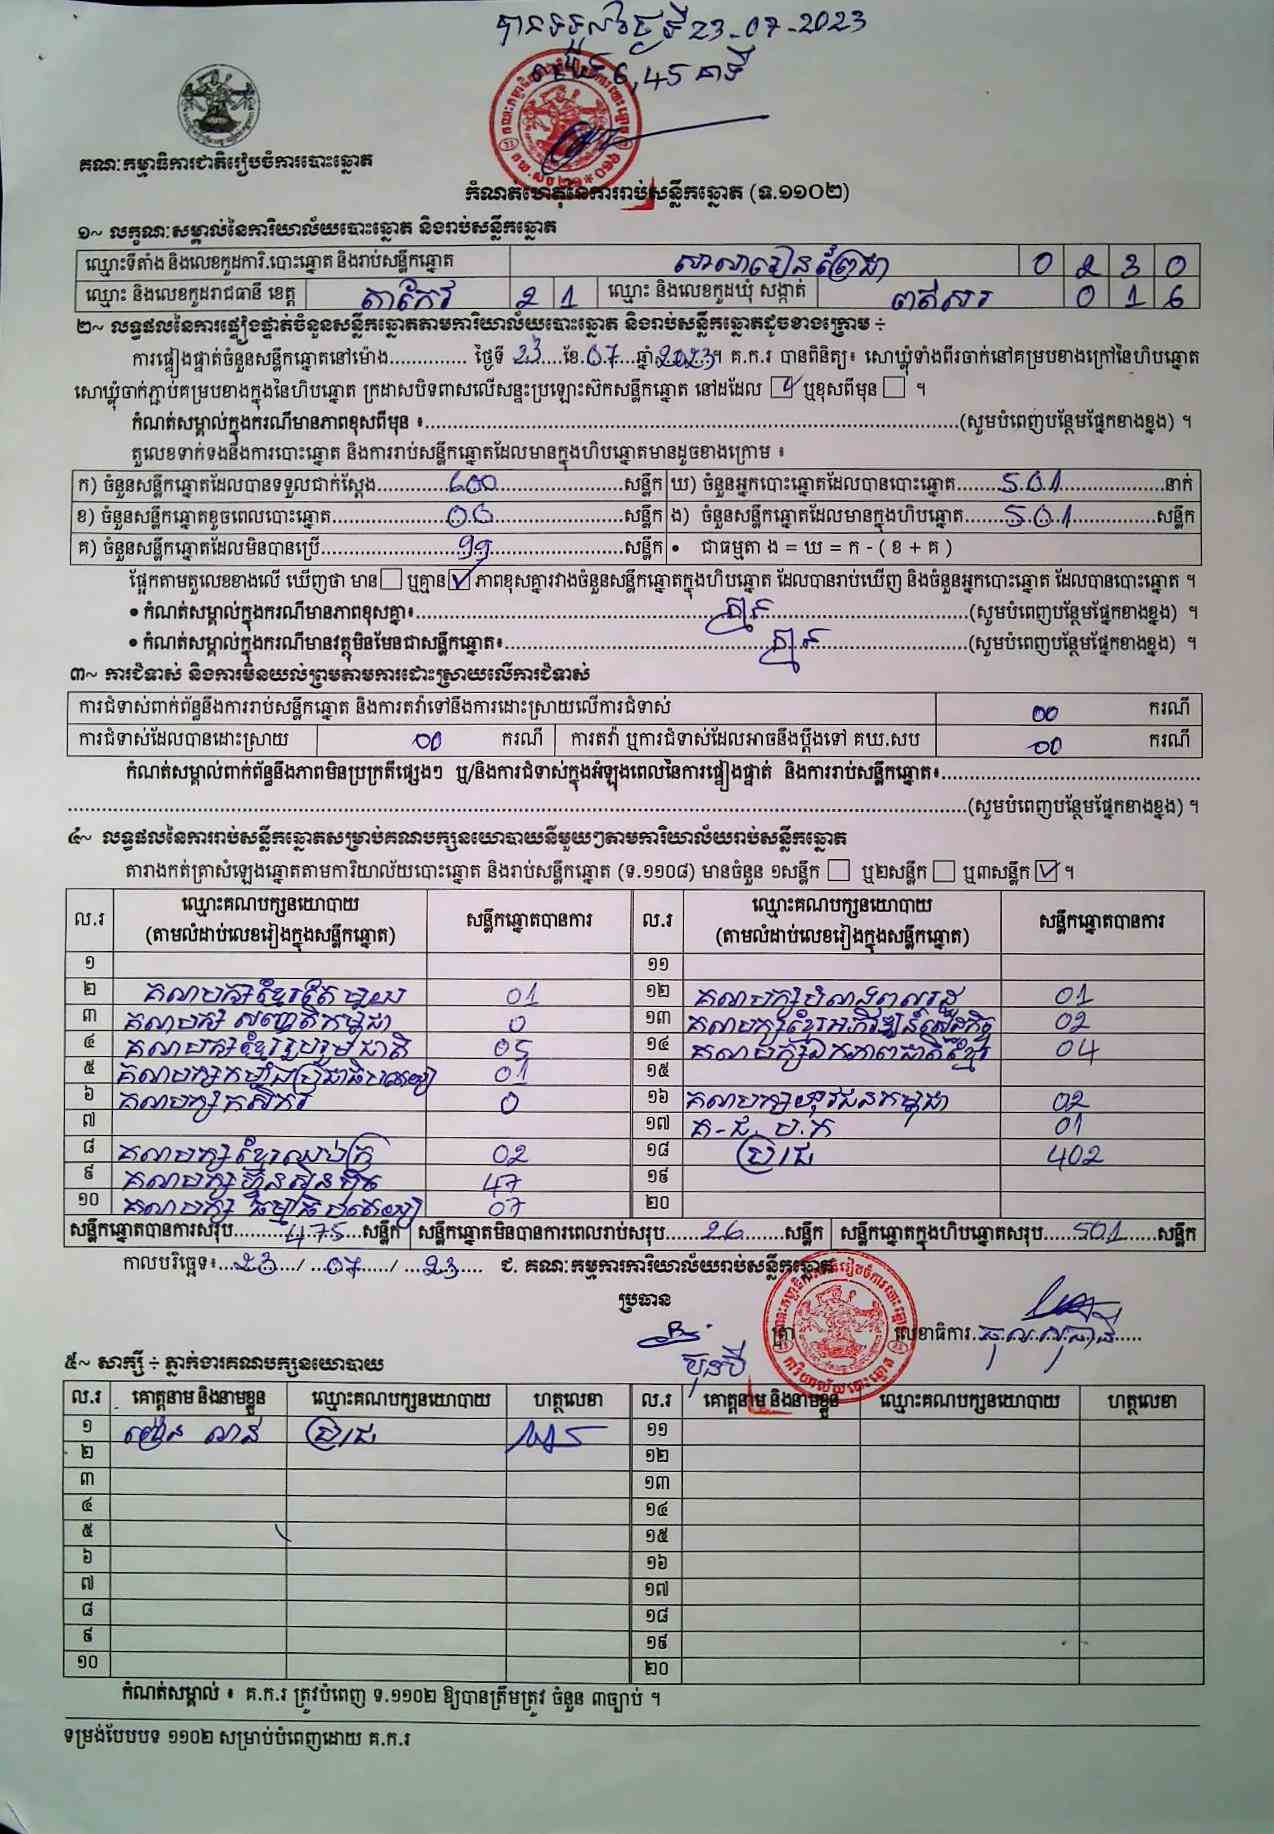 បានទទួលថ្ងៃទី 23-07-2023
6,45 នាទី
គណៈកម្មាធិការជាតិរៀបចំការបោះឆ្នោត
កំណត់ហេតុនៃការរាប់សន្លឹកឆ្នោត (ទ.១១០២)
១~ លក្ខណៈសម្គាល់នៃការិយាល័យបោះឆ្នោត និងរាប់សន្លឹកឆ្នោត
ឈ្មោះទីតាំង និងលេខកូដការិ.បោះឆ្នោត និងរាប់សន្លឹកឆ្នោត សាលារៀនព្រៃផ្ដា 0 2 3 0
ឈ្មោះ និងលេខកូដរាជធានី ខេត្ត តាកែវ 2 1 ឈ្មោះ និងលេខកូដឃុំ សង្កាត់ ពត់សរ 0 1 6
២~ លទ្ធផលនៃការផ្ទៀងផ្ទាត់ចំនួនសន្លឹកឆ្នោតតាមការិយាល័យបោះឆ្នោត និងរាប់សន្លឹកឆ្នោតដូចខាងក្រោម ÷
ការផ្ទៀងផ្ទាត់ចំនួនសន្លឹកឆ្នោតនៅម៉ោង.............. ថ្ងៃទី 23....ខែ.07....ឆ្នាំ.2023.។ គ.ក.រ បានពិនិត្យ៖ សោឃ្លុំទាំងពីរចាក់នៅគម្របខាងក្រៅនៃហិបឆ្នោត
សោឃ្លុំចាក់ភ្ជាប់គម្របខាងក្នុងនៃហិបឆ្នោត ក្រដាសបិទពាសលើសន្ទះប្រឡោះស៊កសន្លឹកឆ្នោត នៅដដែល ☑ ឬខុសពីមុន ☐ ។
កំណត់សម្គាល់ក្នុងករណីមានភាពខុសពីមុន ៖..............................(សូមបំពេញបន្ថែមផ្នែកខាងខ្នង) ។
តួលេខទាក់ទងនឹងការបោះឆ្នោត និងការរាប់សន្លឹកឆ្នោតដែលមានក្នុងហិបឆ្នោតមានដូចខាងក្រោម ៖
ក) ចំនួនសន្លឹកឆ្នោតដែលបានទទួលជាក់ស្តែង...........600...........សន្លឹក ឃ) ចំនួនអ្នកបោះឆ្នោតដែលបានបោះឆ្នោត........501...........នាក់
ខ) ចំនួនសន្លឹកឆ្នោតខូចពេលបោះឆ្នោត...........00...........សន្លឹក ង) ចំនួនសន្លឹកឆ្នោតដែលមានក្នុងហិបឆ្នោត........501...........សន្លឹក
គ) ចំនួនសន្លឹកឆ្នោតដែលមិនបានប្រើ...........99...........សន្លឹក • ជាធម្មតា ង = ឃ = ក - ( ខ + គ )
ផ្អែកតាមតួលេខខាងលើ ឃើញថា មាន ☐ ឬគ្មាន ☑ ភាពខុសគ្នារវាងចំនួនសន្លឹកឆ្នោតក្នុងហិបឆ្នោត ដែលបានរាប់ឃើញ និងចំនួនអ្នកបោះឆ្នោត ដែលបានបោះឆ្នោត ។
• កំណត់សម្គាល់ក្នុងករណីមានភាពខុសគ្នា៖...........គ្មាន...........(សូមបំពេញបន្ថែមផ្នែកខាងខ្នង) ។
• កំណត់សម្គាល់ក្នុងករណីមានវត្ថុមិនមែនជាសន្លឹកឆ្នោត៖...........គ្មាន...........(សូមបំពេញបន្ថែមផ្នែកខាងខ្នង) ។
៣~ ការជំទាស់ និងការមិនយល់ព្រមតាមការដោះស្រាយលើការជំទាស់
ការជំទាស់ពាក់ព័ន្ធនឹងការរាប់សន្លឹកឆ្នោត និងការតវ៉ាទៅនឹងការដោះស្រាយលើការជំទាស់ 00 ករណី
ការជំទាស់ដែលបានដោះស្រាយ 00 ករណី ការតវ៉ា ឬការជំទាស់ដែលអាចនឹងប្តឹងទៅ គឃ.សប 00 ករណី
កំណត់សម្គាល់ពាក់ព័ន្ធនឹងភាពមិនប្រក្រតីផ្សេងៗ ឬ/និងការជំទាស់ក្នុងអំឡុងពេលនៃការផ្ទៀងផ្ទាត់ និងការរាប់សន្លឹកឆ្នោត៖..............................
..............................(សូមបំពេញបន្ថែមផ្នែកខាងខ្នង) ។
៤~ លទ្ធផលនៃការរាប់សន្លឹកឆ្នោតសម្រាប់គណបក្សនយោបាយនីមួយៗតាមការិយាល័យរាប់សន្លឹកឆ្នោត
តារាងកត់ត្រាសំឡេងឆ្នោតតាមការិយាល័យបោះឆ្នោត និងរាប់សន្លឹកឆ្នោត (ទ.១១០៨) មានចំនួន ១សន្លឹក ☐ ឬ២សន្លឹក ☐ ឬ៣សន្លឹក ☑ ។
ល.រ ឈ្មោះគណបក្សនយោបាយ (តាមលំដាប់លេខរៀងក្នុងសន្លឹកឆ្នោត) សន្លឹកឆ្នោតបានការ ល.រ ឈ្មោះគណបក្សនយោបាយ (តាមលំដាប់លេខរៀងក្នុងសន្លឹកឆ្នោត) សន្លឹកឆ្នោតបានការ
១ ១១
២ គណបក្សខ្មែរតែមួយ 01 ១២ គណបក្សបំណងពលរដ្ឋ 01
៣ គណបក្ស សញ្ជាតិកម្ពុជា 0 ១៣ គណបក្សខ្មែរអភិវឌ្ឍន៍សេដ្ឋកិច្ច 02
៤ គណបក្សខ្មែររួបរួមជាតិ 05 ១៤ គណបក្សឯកភាពជាតិខ្មែរ 04
៥ គណបក្សកម្លាំងប្រជាធិបតេយ្យ 01 ១៥
៦ គណបក្សកសិករ 0 ១៦ គណបក្សយុវជនកម្ពុជា 02
៧ ១៧ គ-ជ.ប.ក 01
៨ គណបក្សខ្មែរឈប់ក្រ 02 ១៨ ប្រជា 402
៩ គណបក្សហ៊្វុនស៊ិនប៉ិច 47 ១៩
១០ គណបក្ស ធម្មាធិបតេយ្យ 07 ២០
សន្លឹកឆ្នោតបានការសរុប.........475.....សន្លឹក សន្លឹកឆ្នោតមិនបានការពេលរាប់សរុប......26......សន្លឹក សន្លឹកឆ្នោតក្នុងហិបឆ្នោតសរុប.....501......សន្លឹក
កាលបរិច្ឆេទ៖...23..../ ...07...../ ...23..... ជ. គណៈកម្មការការិយាល័យរាប់សន្លឹកឆ្នោត
ប្រធាន
ត្រា លេខាធិការ..............
ប៊ុនធី
៥~ សាក្សី ÷ ភ្នាក់ងារគណបក្សនយោបាយ
ល.រ គោត្តនាម និងនាមខ្លួន ឈ្មោះគណបក្សនយោបាយ ហត្ថលេខា ល.រ គោត្តនាម និងនាមខ្លួន ឈ្មោះគណបក្សនយោបាយ ហត្ថលេខា
១ ប្រជា ១១
២ ១២
៣ ១៣
៤ ១៤
៥ ១៥
៦ ១៦
៧ ១៧
៨ ១៨
៩ ១៩
១០ ២០
កំណត់សម្គាល់ ៖ គ.ក.រ ត្រូវបំពេញ ទ.១១០២ ឱ្យបានត្រឹមត្រូវ ចំនួន ៣ច្បាប់ ។
ទម្រង់បែបបទ ១១០២ សម្រាប់បំពេញដោយ គ.ក.រ